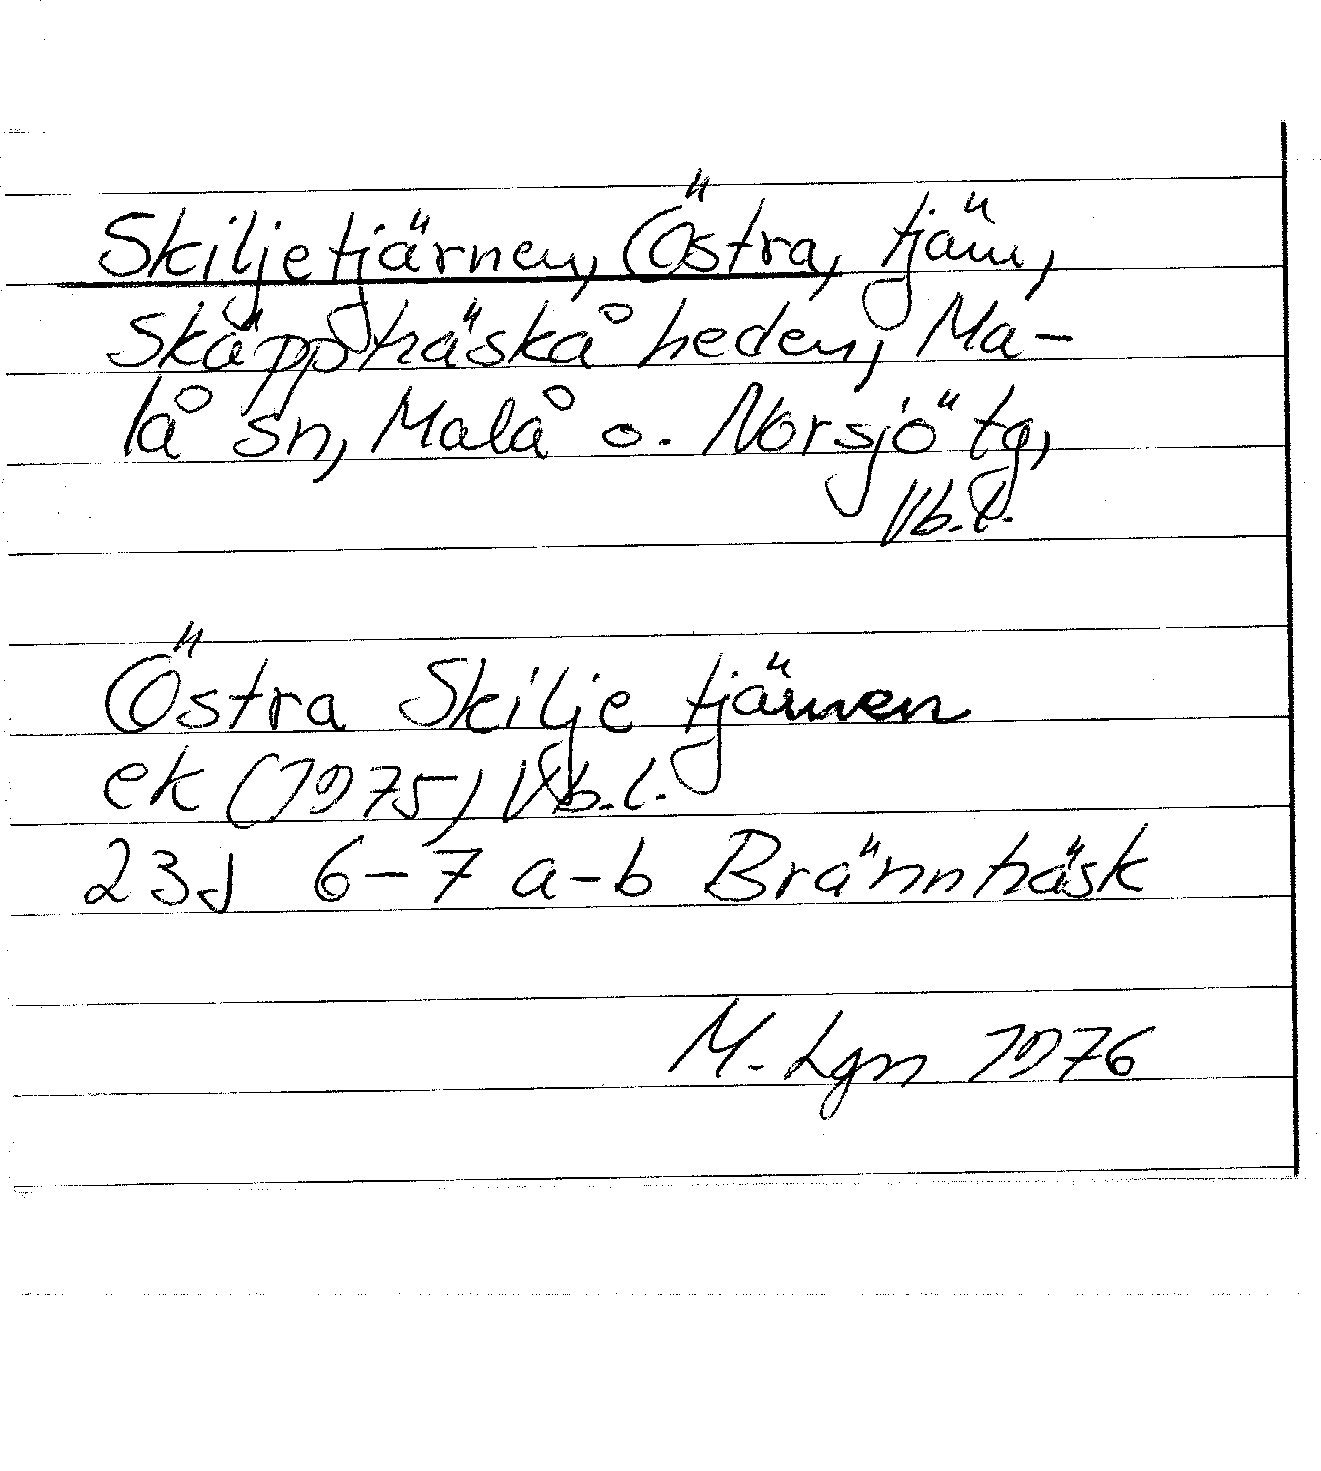 Skiljetjärnen, Östra, tjärn,
Skäppträskåheden, Ma-
lå sn, Malå o. Norsjö tg,
Vb.l.
Östra Skiljetjärnen
ek (1975) Vb.l.
23J 6-7 a-b Brännträsk
M. Lgn 1976